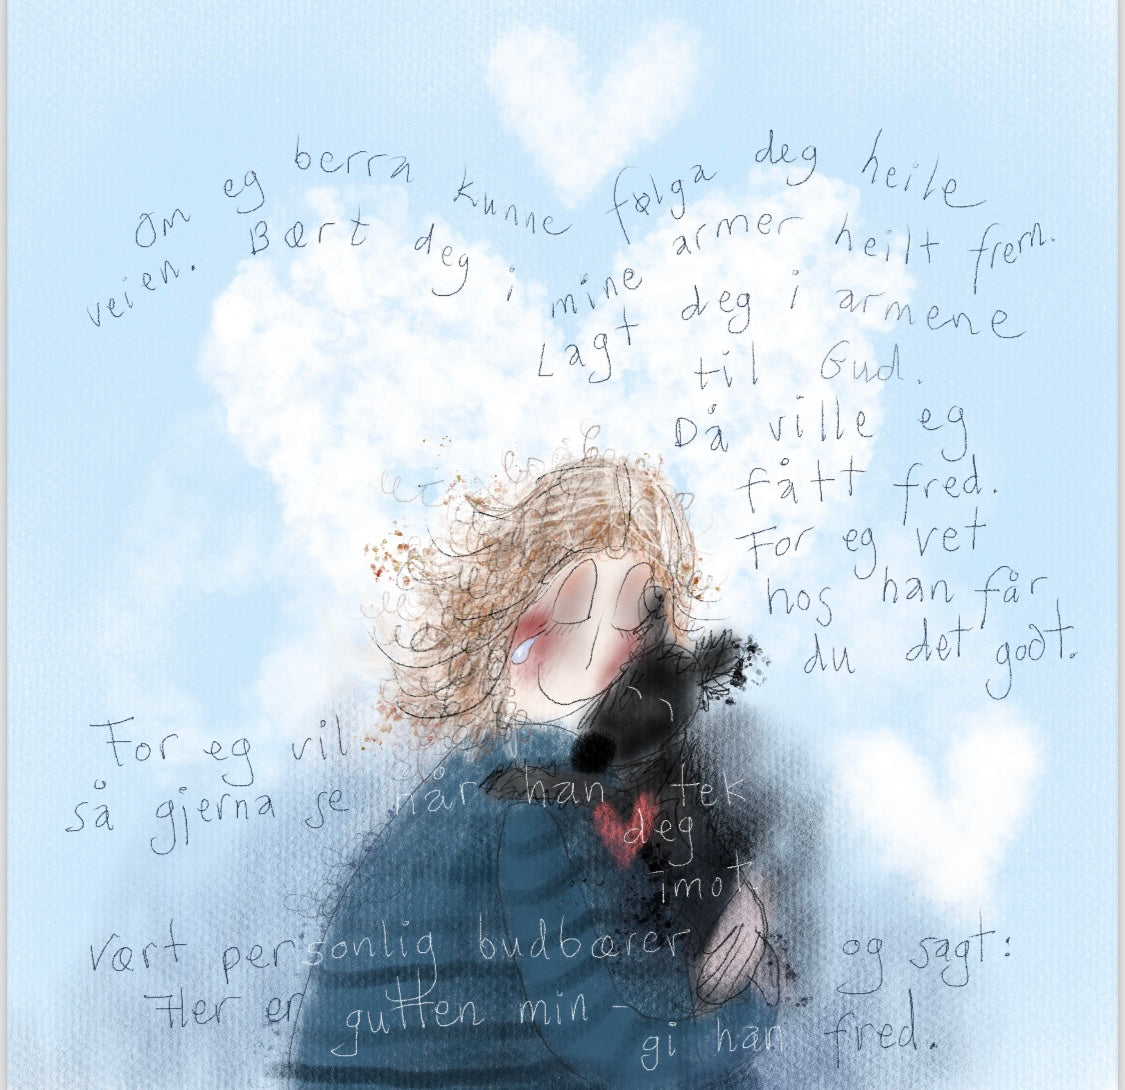 Om eg berra kunne følga deg heile
veien. Bært deg i mine armer heilt frem.
Lagt deg i armene
til Gud.
Då ville eg
fått fred.
For eg vet
hos han får
du det godt.
For eg vil
så gjerna se når han tek
deg
imot.
Vært personlig budbærer og sagt:
Her er gutten min -
gi han fred.